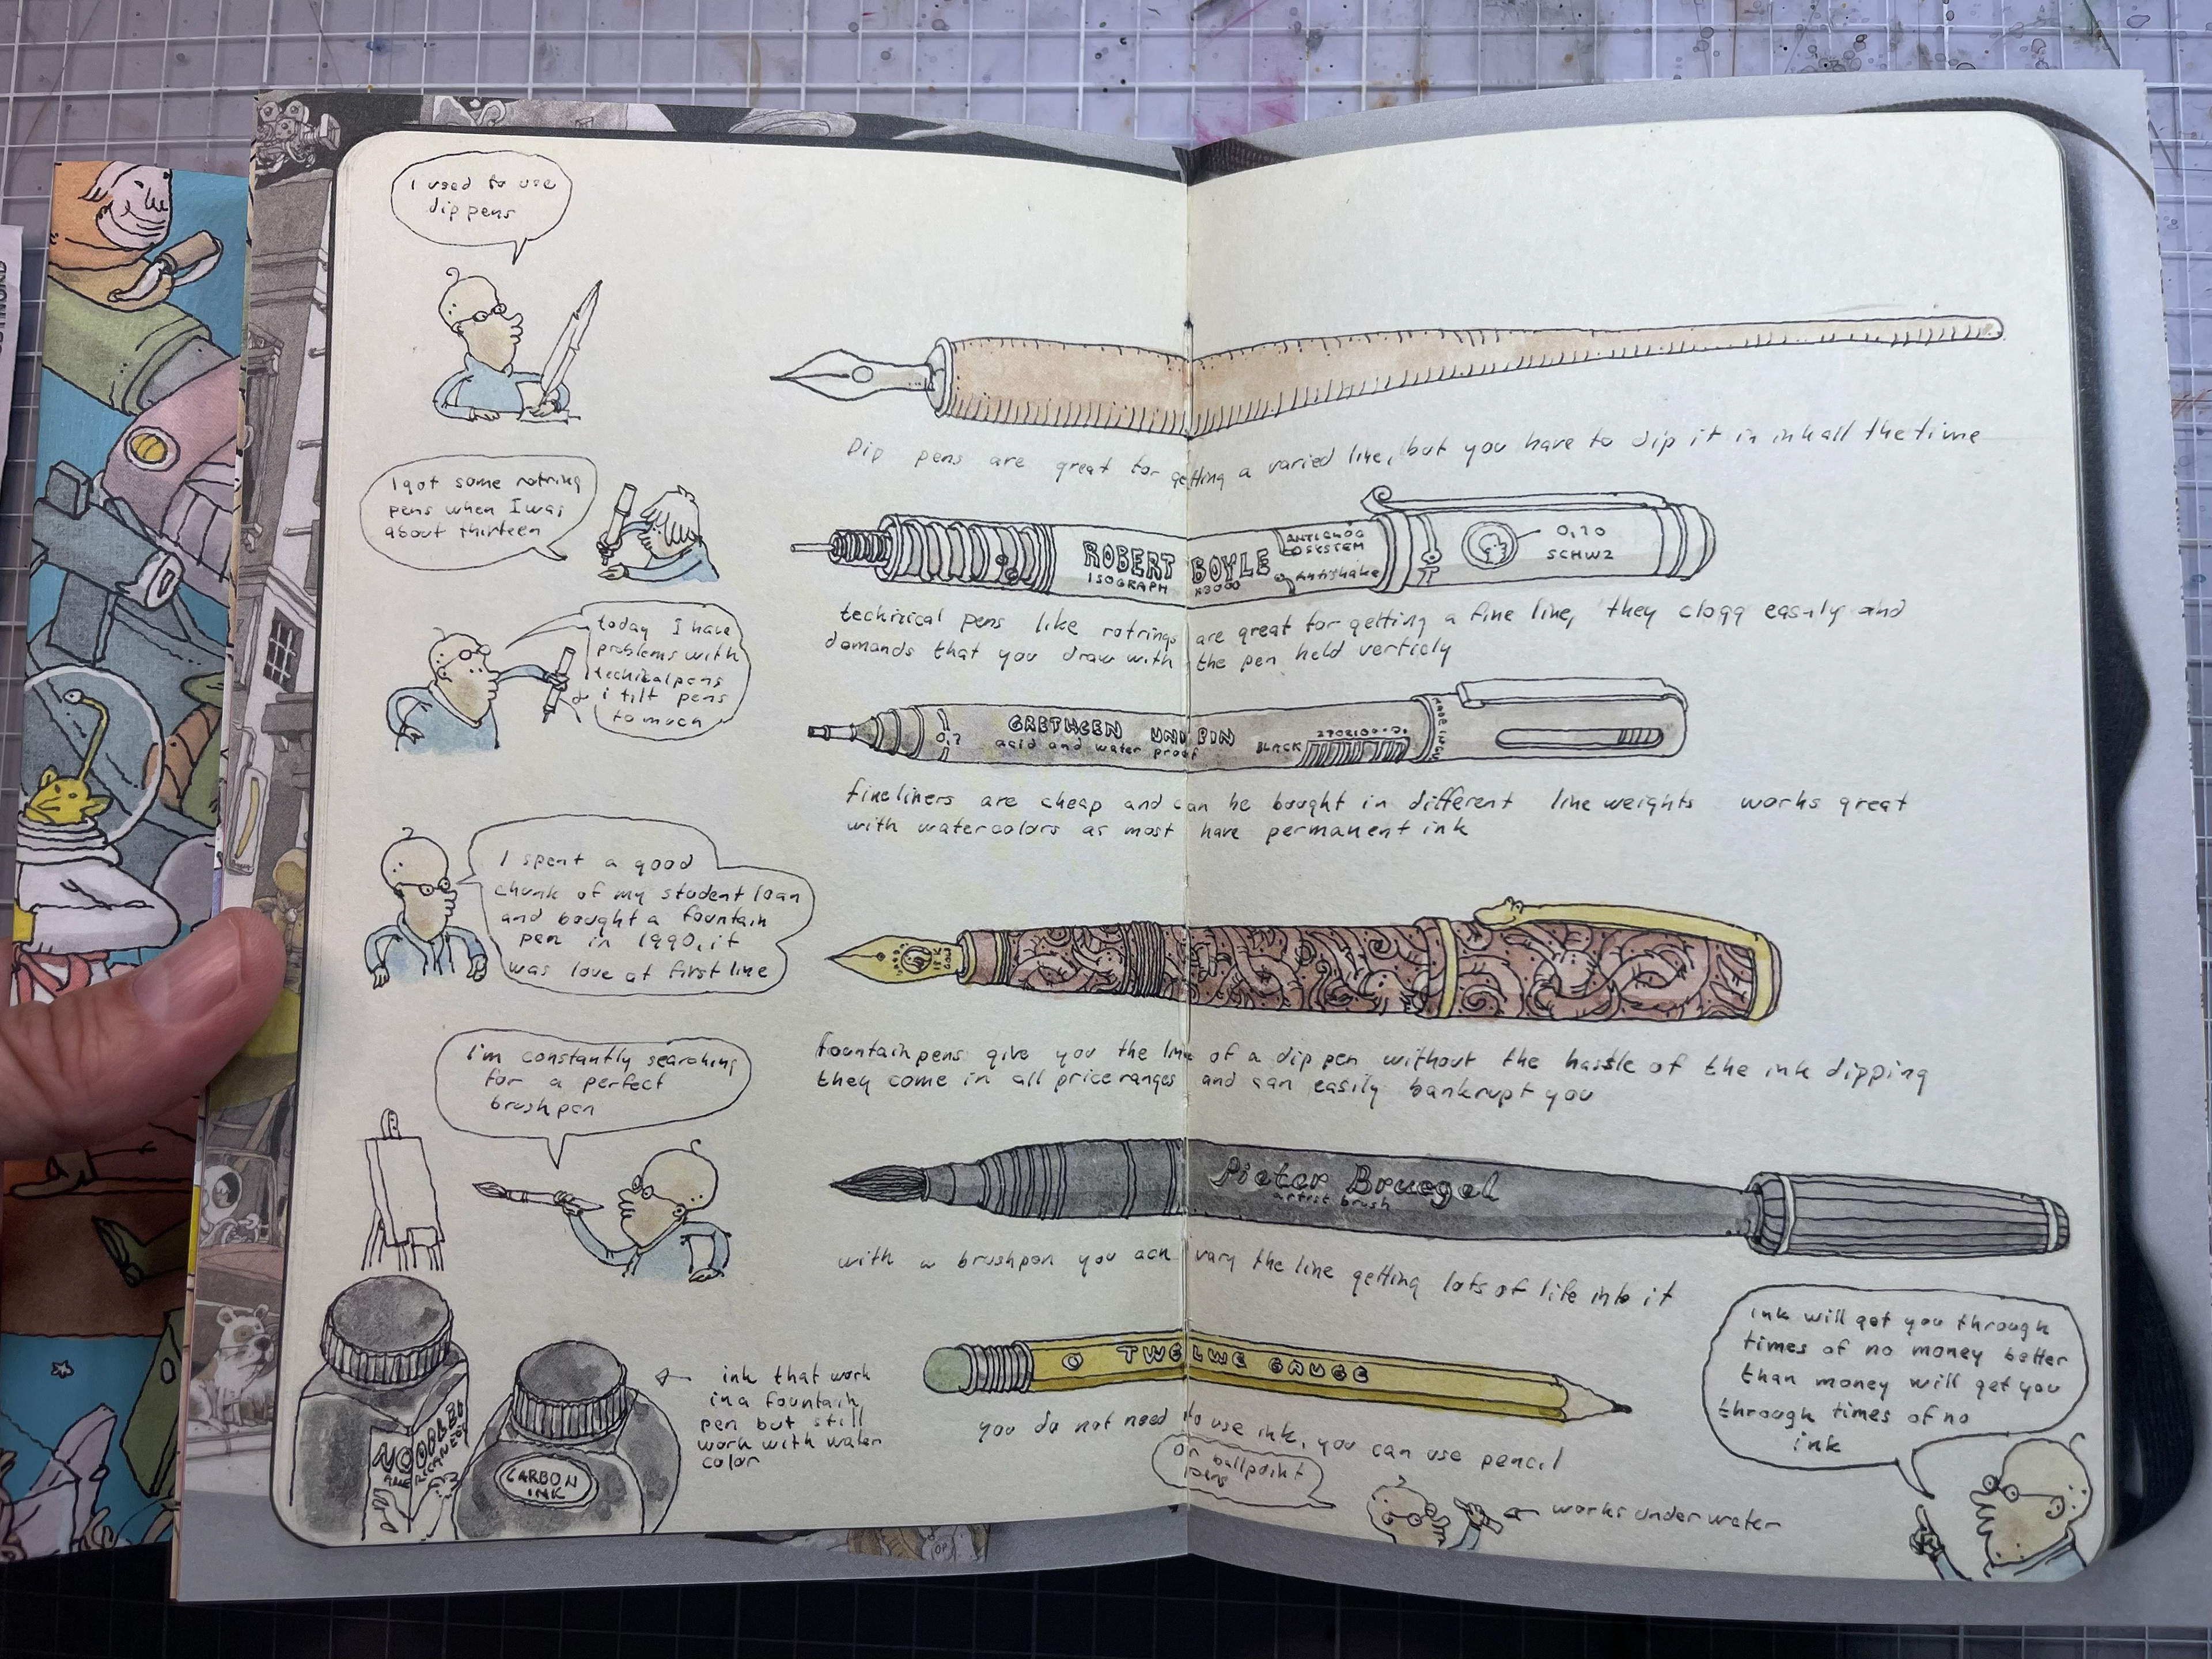 I used to use
dip pens
Dip pens are great for getting a varied line, but you have to dip it in ink all the time
I got some rotring
pens when I was
about thirteen
ROBERT BOYLE
ISOGRAPH
ANTICLOG
SYSTEM
Antishake
0,20
SCHWZ
technical pens like rotrings are great for getting a fine line, they clogg easily and
demands that you draw with the pen held verticly
today I have
problems with
techicalpens
i tilt pens
to much
0,2
GRETHGEN UNI PIN
acid and water proof
BLACK
fineliners are cheap and can be bought in different line weights works great
with watercolors as most have permanent ink
I spent a good
chunk of my student loan
and bought a fountain
pen in 1990, it
was love at first line
18 K
GOLD
fountainpens give you the line of a dip pen without the hassle of the ink dipping
they come in all priceranges and can easily bankrupt you
I'm constantly searching
for a perfect
brushpen
Pieter Bruegel
artist brush
with a brushpen you acn vary the line getting lots of life into it
ink that work
in a fountain
pen but still
work with water
color
CARBON
INK
TWELWE GAUGE
you do not need to use ink, you can use pencil
or ballpoint
pens
works under water
ink will get you through
times of no money better
than money will get you
through times of no
ink